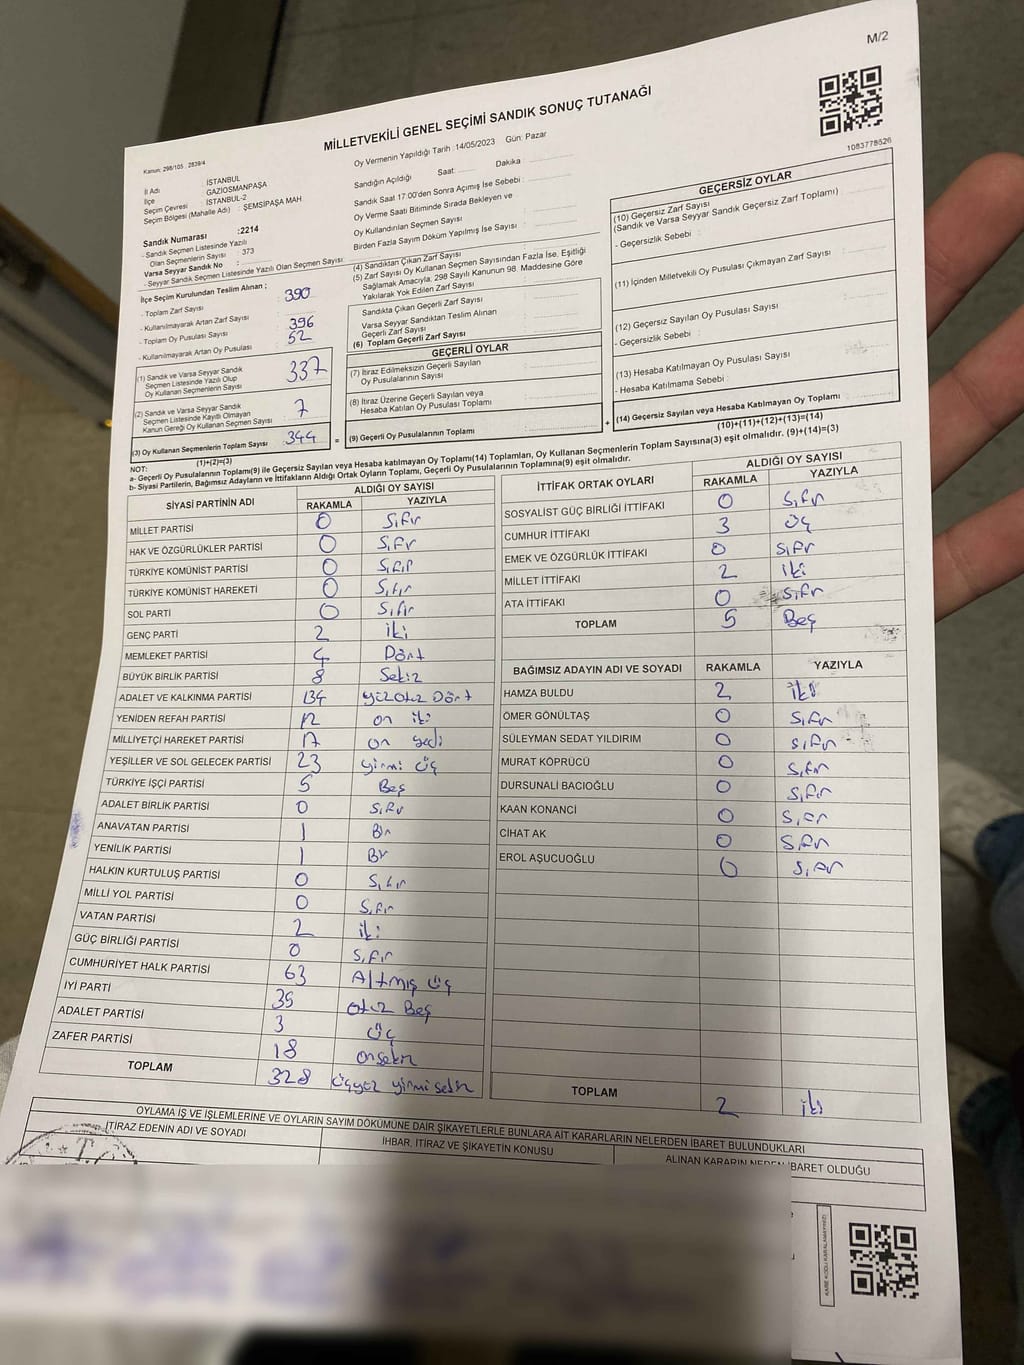 M/2
MİLLETVEKİLİ GENEL SEÇİMİ SANDIK SONUÇ TUTANAĞI
1083778526
Kanun: 298/105 . 2839/4
İl Adı : İSTANBUL
İlçe : GAZİOSMANPAŞA
Seçim Çevresi : İSTANBUL-2
Seçim Bölgesi (Mahalle Adı) : ŞEMSİPAŞA MAH
Sandık Numarası :2214
- Sandık Seçmen Listesinde Yazılı
Olan Seçmenlerin Sayısı : 373
Varsa Seyyar Sandık No :
- Seyyar Sandık Seçmen Listesinde Yazılı Olan Seçmen Sayısı :
İlçe Seçim Kurulundan Teslim Alınan ;
- Toplam Zarf Sayısı 390
- Kullanılmayarak Artan Zarf Sayısı
- Toplam Oy Pusulası Sayısı 396
- Kullanılmayarak Artan Oy Pusulası 52
(1) Sandık ve Varsa Seyyar Sandık
Seçmen Listesinde Yazılı Olup
Oy Kullanan Seçmenlerin Sayısı 337
(2) Sandık ve Varsa Seyyar Sandık
Seçmen Listesinde Kayıtlı Olmayan
Kanun Gereği Oy Kullanan Seçmen Sayısı 7
(3) Oy Kullanan Seçmenlerin Toplam Sayısı 344
(1)+(2)=(3)
Oy Vermenin Yapıldığı Tarih :14/05/2023 Gün: Pazar
Sandığın Açıldığı Saat Dakika
Sandık Saat 17.00'den Sonra Açımış İse Sebebi :
Oy Verme Saati Bitiminde Sırada Bekleyen ve
Oy Kullandırılan Seçmen Sayısı
Birden Fazla Sayım Döküm Yapılmış İse Sayısı :
(4) Sandıktan Çıkan Zarf Sayısı
(5) Zarf Sayısı Oy Kullanan Seçmen Sayısından Fazla İse, Eşitliği
Sağlamak Amacıyla, 298 Sayılı Kanunun 98. Maddesine Göre
Yakılarak Yok Edilen Zarf Sayısı
Sandıkta Çıkan Geçerli Zarf Sayısı
Varsa Seyyar Sandıktan Teslim Alınan
Geçerli Zarf Sayısı
(6) Toplam Geçerli Zarf Sayısı
GEÇERLİ OYLAR
(7) İtiraz Edilmeksizin Geçerli Sayılan
Oy Pusulalarının Sayısı
(8) İtiraz Üzerine Geçerli Sayılan veya
Hesaba Katılan Oy Pusulası Toplamı
= (9) Geçerli Oy Pusulalarının Toplamı +
GEÇERSİZ OYLAR
(10) Geçersiz Zarf Sayısı
(Sandık ve Varsa Seyyar Sandık Geçersiz Zarf Toplamı) :
- Geçersizlik Sebebi :
(11) İçinden Milletvekili Oy Pusulası Çıkmayan Zarf Sayısı
(12) Geçersiz Sayılan Oy Pusulası Sayısı
- Geçersizlik Sebebi :
(13) Hesaba Katılmayan Oy Pusulası Sayısı
- Hesaba Katılmama Sebebi :
(14) Geçersiz Sayılan veya Hesaba Katılmayan Oy Toplamı
(10)+(11)+(12)+(13)=(14)
NOT:
a- Geçerli Oy Pusulalarının Toplamı(9) ile Geçersiz Sayılan veya Hesaba katılmayan Oy Toplamı(14) Toplamları, Oy Kullanan Seçmenlerin Toplam Sayısına(3) eşit olmalıdır. (9)+(14)=(3)
b- Siyasi Partilerin, Bağımsız Adayların ve İttifakların Aldığı Ortak Oyların Toplamı, Geçerli Oy Pusulalarının Toplamına(9) eşit olmalıdır.
SİYASİ PARTİNİN ADI ALDIĞI OY SAYISI
RAKAMLA YAZIYLA
MİLLET PARTİSİ 0 Sıfır
HAK VE ÖZGÜRLÜKLER PARTİSİ 0 Sıfır
TÜRKİYE KOMÜNİST PARTİSİ 0 Sıfır
TÜRKİYE KOMÜNİST HAREKETİ 0 Sıfır
SOL PARTİ 0 Sıfır
GENÇ PARTİ 2 iki
MEMLEKET PARTİSİ 4 Dört
BÜYÜK BİRLİK PARTİSİ 8 Sekiz
ADALET VE KALKINMA PARTİSİ 134 yüzotuz Dört
YENİDEN REFAH PARTİSİ 12 on iki
MİLLİYETÇİ HAREKET PARTİSİ 17 on yedi
YEŞİLLER VE SOL GELECEK PARTİSİ 23 yirmi üç
TÜRKİYE İŞÇİ PARTİSİ 5 Beş
ADALET BİRLİK PARTİSİ 0 Sıfır
ANAVATAN PARTİSİ 1 Bir
YENİLİK PARTİSİ 1 Bir
HALKIN KURTULUŞ PARTİSİ 0 Sıfır
MİLLİ YOL PARTİSİ 0 Sıfır
VATAN PARTİSİ 2 iki
GÜÇ BİRLİĞİ PARTİSİ 0 Sıfır
CUMHURİYET HALK PARTİSİ 63 Altmış üç
İYİ PARTİ 35 otuz Beş
ADALET PARTİSİ 3 üç
ZAFER PARTİSİ 18 onsekiz
TOPLAM 328 üçyüz yirmi sekiz
İTTİFAK ORTAK OYLARI ALDIĞI OY SAYISI
RAKAMLA YAZIYLA
SOSYALİST GÜÇ BİRLİĞİ İTTİFAKI 0 Sıfır
CUMHUR İTTİFAKI 3 üç
EMEK VE ÖZGÜRLÜK İTTİFAKI 0 Sıfır
MİLLET İTTİFAKI 2 iki
ATA İTTİFAKI 0 Sıfır
TOPLAM 5 Beş
BAĞIMSIZ ADAYIN ADI VE SOYADI RAKAMLA YAZIYLA
HAMZA BULDU 2 iki
ÖMER GÖNÜLTAŞ 0 Sıfır
SÜLEYMAN SEDAT YILDIRIM 0 Sıfır
MURAT KÖPRÜCÜ 0 Sıfır
DURSUNALİ BACIOĞLU 0 Sıfır
KAAN KONANCİ 0 Sıfır
CİHAT AK 0 Sıfır
EROL AŞUCUOĞLU 0 Sıfır
TOPLAM 2 iki
OYLAMA İŞ VE İŞLEMLERİNE VE OYLARIN SAYIM DÖKÜMÜNE DAİR ŞİKAYETLERLE BUNLARA AİT KARARLARIN NELERDEN İBARET BULUNDUKLARI
İTİRAZ EDENİN ADI VE SOYADI
İHBAR, İTİRAZ VE ŞİKAYETİN KONUSU
ALINAN KARARIN NEDEN İBARET OLDUĞU